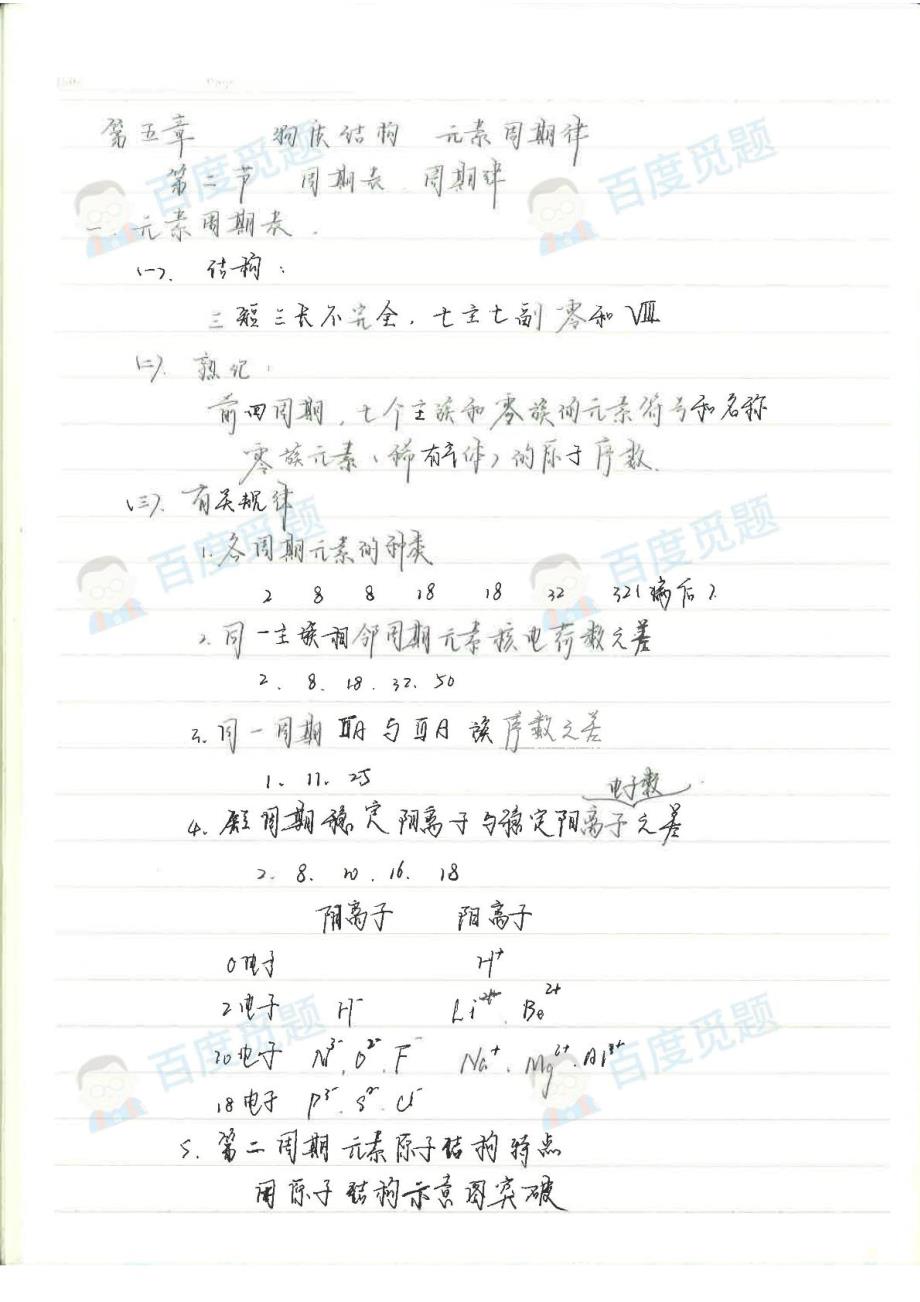 第五章 物质结构 元素周期律
第二节 周期表、周期律
一、元素周期表.
(一). 结构:
三短三长不完全, 七主七副零和Ⅷ
(二). 熟记:
前四周期, 七个主族和零族的元素符号和名称
零族元素(稀有气体)的原子序数.
(三). 有关规律
1. 各周期元素的种类
2 8 8 18 18 32 32(满后).
2. 同一主族相邻周期元素核电荷数之差
2. 8. 18. 32. 50
3. 同一周期ⅡA与ⅢA族序数之差
1. 11. 25
电子数
4. 短周期稳定阴离子与稳定阳离子之差
2. 8. 10. 16. 18
阴离子 阳离子
0电子 H⁺
2电子 H⁻ Li⁺. Be²⁺
10电子 N³⁻. O²⁻. F⁻ Na⁺. Mg²⁺. Al³⁺
18电子 P³⁻. S²⁻. Cl⁻
5. 第二周期元素原子结构特点
用原子结构示意图突破
百度觅题
百度觅题
百度觅题
百度觅题
百度觅题
百度觅题